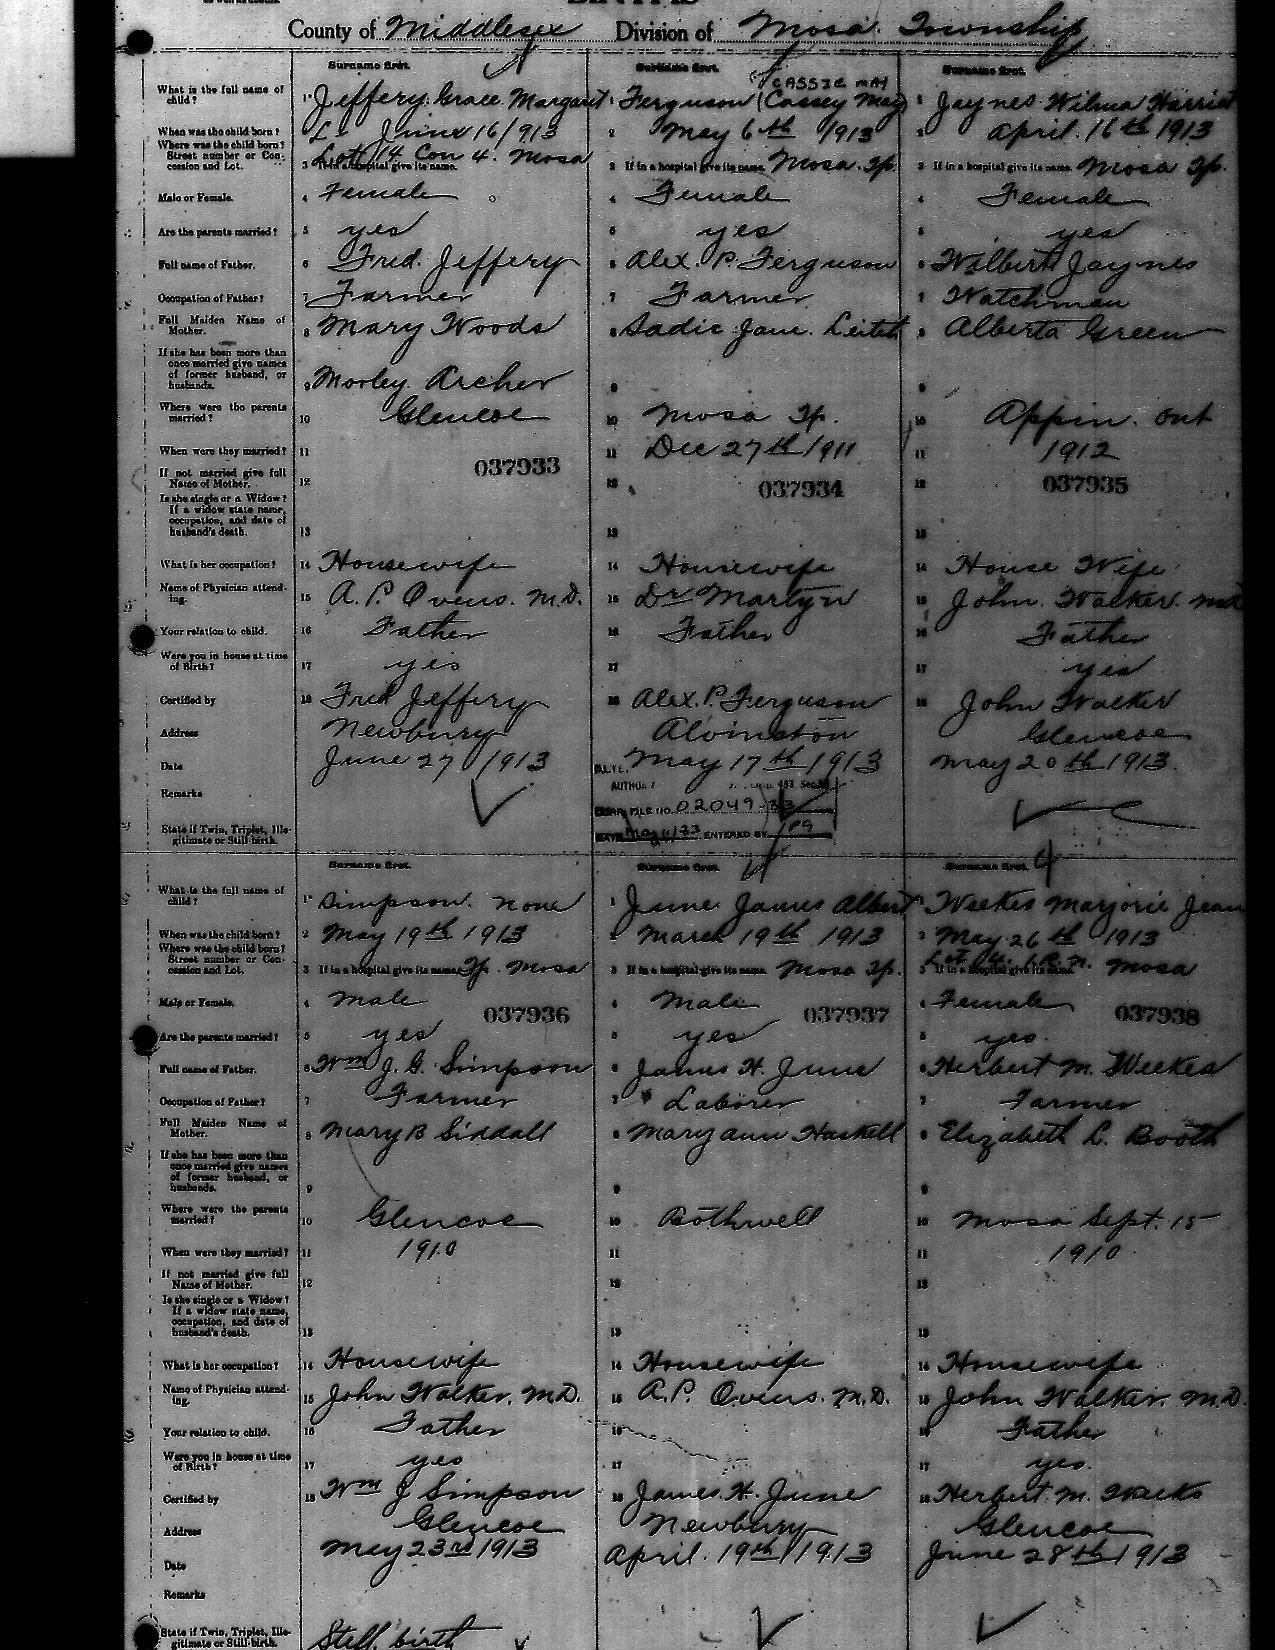 BIRTHS
County of Middlesex Division of Mosa Township
Surname first. Surname first. Surname first.
CASSIE MAY
What is the full name of child? 1 Jeffery Grace Margaret 1 Ferguson (Cassey May) 1 Jaynes Wilma Harriet
When was the child born? June 16/913 2 May 6th 1913 2 April 16th 1913
Where was the child born? Street number or Concession and Lot. Lot 14 Con 4. Mosa 3 If in a hospital give its name. Mosa Tp. 3 If in a hospital give its name. Mosa Tp.
3 If in a hospital give its name.
Male or Female. 4 Female 4 Female 4 Female
Are the parents married? 5 yes 5 yes 5 yes
Full name of Father. 6 Fred. Jeffery 6 Alex. P. Ferguson 6 Wilbert Jaynes
Occupation of Father? 7 Farmer 7 Farmer 7 Watchman
Full Maiden Name of Mother. 8 Mary Woods 8 Sadie Jane Leitch 8 Alberta Green
If she has been more than once married give names of former husband, or husbands. 9 Morley Archer 9 9
Where were the parents married? 10 Glencoe 10 Mosa Tp. 10 Appin. Ont
When were they married? 11 11 Dec 27th 1911 11 1912
If not married give full Name of Mother. 12 037933 12 037934 12 037935
Is she single or a Widow? If a widow state name, occupation, and date of husband's death. 13 13 13
What is her occupation? 14 Housewife 14 Housewife 14 House Wife
Name of Physician attending. 15 A. P. Owens. M.D. 15 Dr Martyn 15 John Walker MD
Your relation to child. 16 Father 16 Father 16 Father
Were you in house at time of Birth? 17 yes 17 17 yes
Certified by 18 Fred Jeffery 18 Alex. P. Ferguson 18 John Walker
Address Newbury Alvinston Glencoe
Date June 27/1913 May 17th 1913 May 20th 1913.
Remarks
FILE NO. 02049-33
State if Twin, Triplet, Illegitimate or Still-birth. ENTERED BY
Surname first. Surname first. Surname first. 4
What is the full name of child? 1 Simpson. none 1 June James Albert Weekes Marjorie Jean
When was the child born? 2 May 19th 1913 2 March 19th 1913 2 May 26th 1913
Where was the child born? Street number or Concession and Lot. 3 If in a hospital give its name. Tp. Mosa 3 If in a hospital give its name. Mosa Tp. Lot 4. 1. R. N. Mosa
3 If in a hospital give its name.
Male or Female. 4 Male 037936 4 Male 037937 4 Female 037938
Are the parents married? 5 yes 5 yes 5 yes.
Full name of Father. 6 Wm J. G. Simpson 6 James H. June 6 Herbert M. Weekes
Occupation of Father? 7 Farmer 7 Laborer 7 Farmer
Full Maiden Name of Mother. 8 Mary B Siddall 8 Mary ann Haskell 8 Elizabeth L. Booth
If she has been more than once married give names of former husband, or husbands. 9 9 9
Where were the parents married? 10 Glencoe 10 Bothwell 10 Mosa Sept. 15
When were they married? 11 1910 11 11 1910
If not married give full Name of Mother. 12 12 12
Is she single or a Widow? If a widow state name, occupation, and date of husband's death. 13 13 13
What is her occupation? 14 Housewife 14 Housewife 14 Housewife
Name of Physician attending. 15 John Walker, M.D. 15 A. P. Owens. M.D. 15 John Walker. M.D.
Your relation to child. 16 Father 16 16 Father
Were you in house at time of Birth? 17 yes 17 17 yes.
Certified by 18 Wm J Simpson 18 James H. June 18 Herbert. M. Weekes
Address Glencoe Newbury Glencoe
Date May 23rd 1913 April. 19th 1913 June 28th 1913
Remarks
State if Twin, Triplet, Illegitimate or Still-birth. Still birth